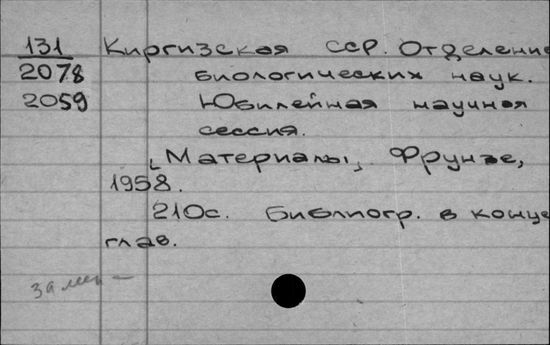 131 Киргизская ССР. Отделение
2078 биологических наук.
2059 Юбилейная научная
сессия.
[Материалы]. Фрунзе,
1958.
210с. Библиогр. в конце
глав.